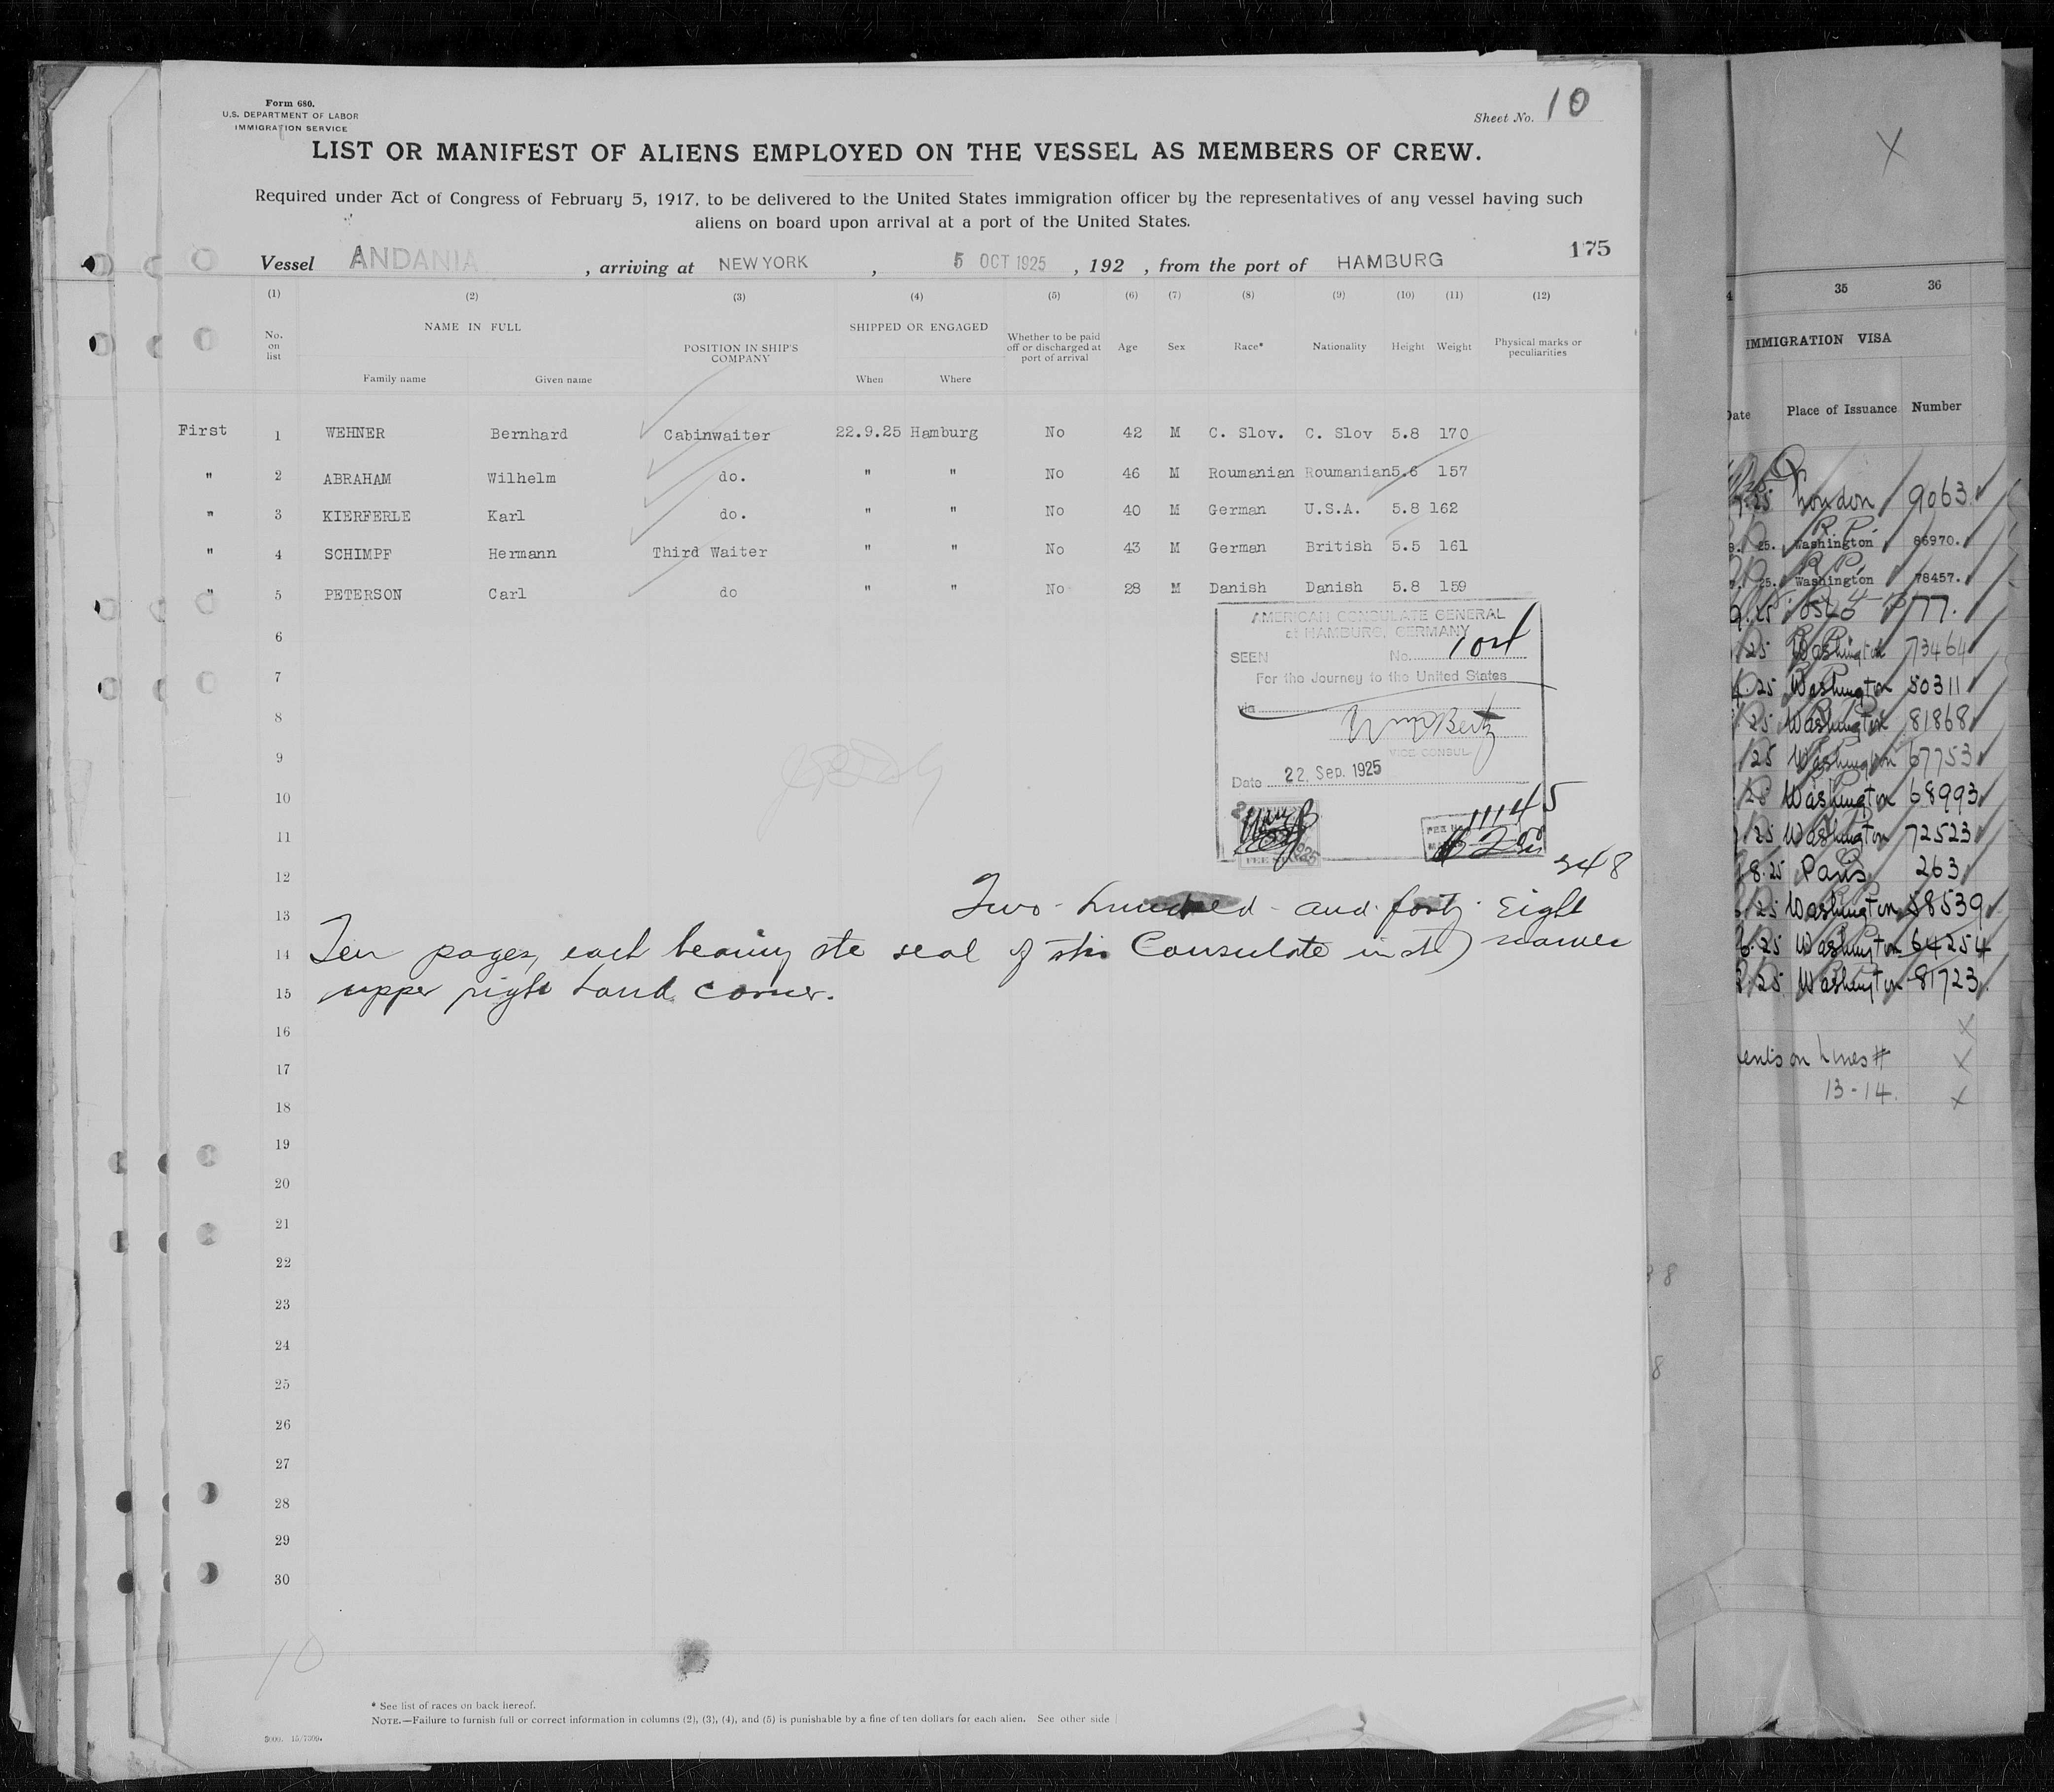 Form 680.
U.S. DEPARTMENT OF LABOR
IMMIGRATION SERVICE
Sheet No. 10
LIST OR MANIFEST OF ALIENS EMPLOYED ON THE VESSEL AS MEMBERS OF CREW.
Required under Act of Congress of February 5, 1917, to be delivered to the United States immigration officer by the representatives of any vessel having such
aliens on board upon arrival at a port of the United States.
175
Vessel ANDANIA, arriving at NEW YORK, 5 OCT 1925, 192 , from the port of HAMBURG
(1) (2) (3) (4) (5) (6) (7) (8) (9) (10) (11) (12)
No. on list NAME IN FULL POSITION IN SHIP'S COMPANY SHIPPED OR ENGAGED Whether to be paid off or discharged at port of arrival Age Sex Race* Nationality Height Weight Physical marks or peculiarities
Family name Given name When Where
First 1 WEHNER Bernhard Cabinwaiter 22.9.25 Hamburg No 42 M C. Slov. C. Slov 5.8 170
" 2 ABRAHAM Wilhelm do. " " No 46 M Roumanian Roumanian 5.6 157
" 3 KIERFERLE Karl do. " " No 40 M German U.S.A. 5.8 162
" 4 SCHIMPF Hermann Third Waiter " " No 43 M German British 5.5 161
" 5 PETERSON Carl do " " No 28 M Danish Danish 5.8 159
6
7
8
9
10
11
12
13
14
15
16
17
18
19
20
21
22
23
24
25
26
27
28
29
30
AMERICAN CONSULATE GENERAL
at HAMBURG, GERMANY
SEEN No. 104
For the Journey to the United States
via
VICE CONSUL
Date 22. Sep. 1925
11145
248
Two hundred and forty eight
Ten pages, each bearing the seal of this Consulate in the names
upper right hand corner.
10
* See list of races on back hereof.
NOTE.—Failure to furnish full or correct information in columns (2), (3), (4), and (5) is punishable by a fine of ten dollars for each alien. See other side
35 36
IMMIGRATION VISA
Date Place of Issuance Number
25 London 9063
25. Washington 86970.
25. Washington 78457.
25 Oslo 77.
25 Washington 73464
25 Washington 80311
25 Washington 81868
25 Washington 67753
25 Washington 68993
25 Washington 72523
8.25 Paris 263
25 Washington 58539
25 Washington 64254
25 Washington 81723
on Lines #
13-14.